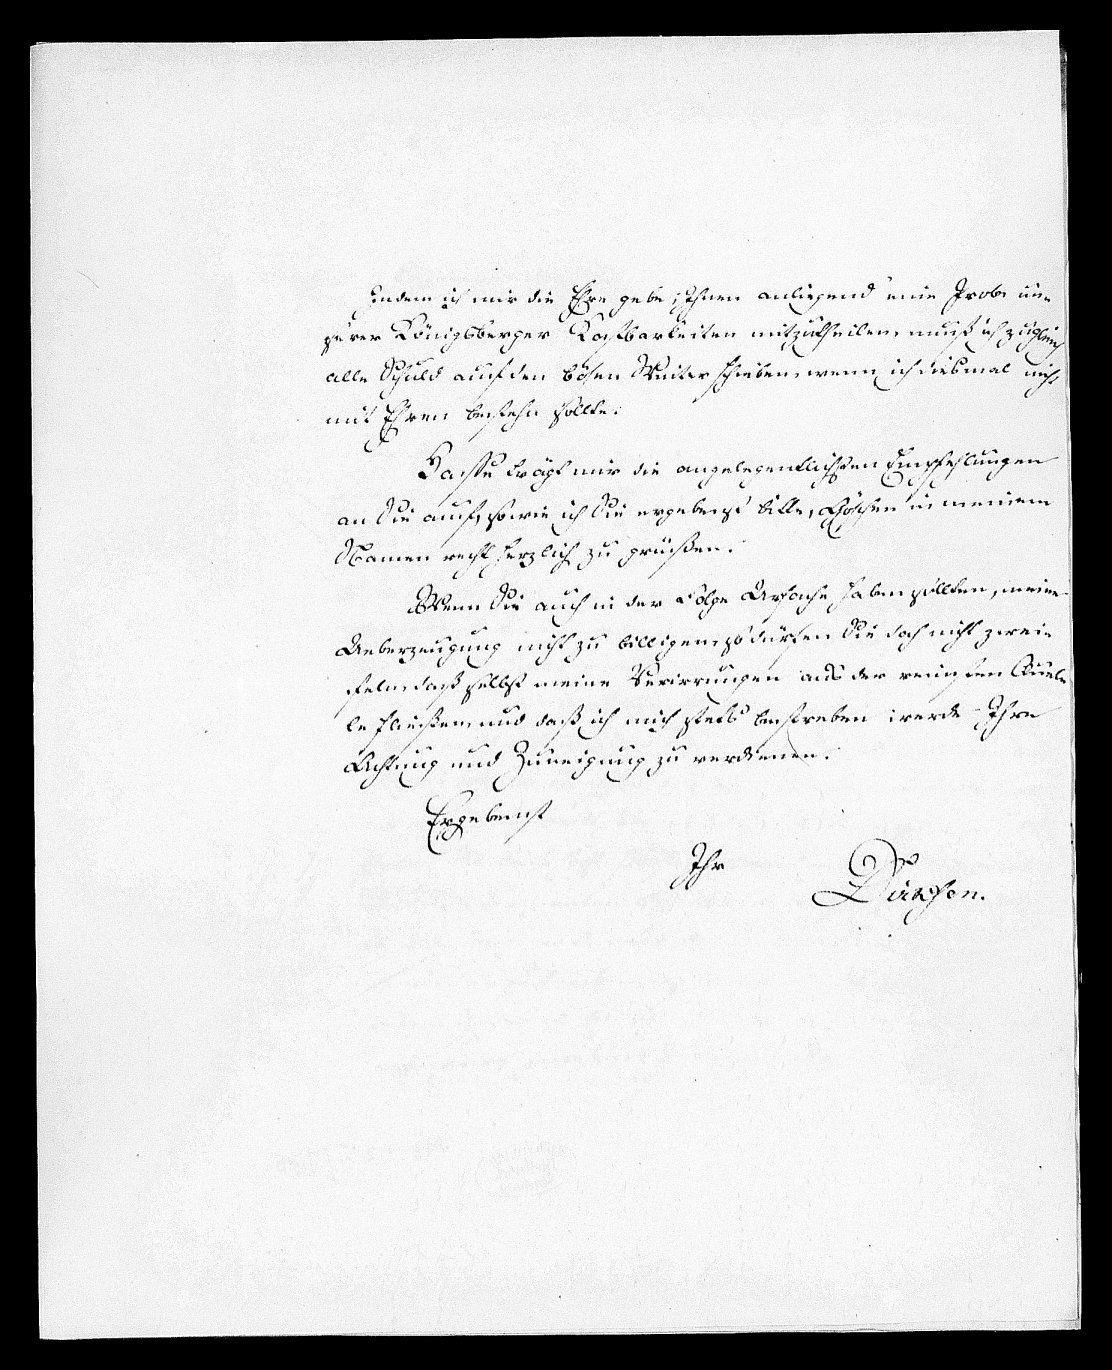 Indem ich mir die Ehre gebe, Ihnen anliegend eine Probe un-
serer Königsberger Kostbarkeiten mitzutheilen, muß ich zugleich
alle Schuld auf den bösen Winter schieben, wenn ich diesmal nicht
mit Ehren bestehn sollte.
trägt mir die angelegentlichsten Empfehlungen
an Sie auf, so wie ich Sie ergebenst bitte, Göschen in meinem
Namen recht herzlich zu grüßen.
Wenn Sie auch in der Folge Ursache haben sollten, meine
Ueberzeugung nicht zu billigen, so dürfen Sie doch nicht zwei-
feln, daß selbst meine Verirrungen aus der reinsten Quel-
le fließen, und daß ich mich stets bestreben werde Ihre
Achtung und Zuneigung zu verdienen.
Ergebenst
Ihr Dirksen.